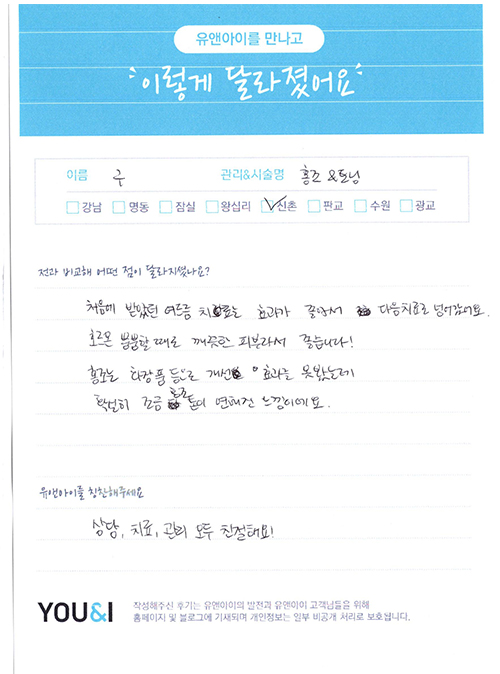 유앤아이를 만나고
이렇게 달라졌어요
이름 구 관리&시술명 홍조 &토닝
강남 명동 잠실 왕십리 신촌 판교 수원 광교
전과 비교해 어떤 점이 달라지셨나요?
처음에 받았던 여드름 치료는 효과가 좋아서 다음치료로 넘어갔어요.
호르몬 뿜뿜할 때도 깨끗한 피부라서 좋습니다!
홍조는 화장품 등으로 개선 효과는 못봤는데
확실히 조금 홍조 톤이 연해진 느낌이에요.
유앤아이를 칭찬해주세요
상담, 치료, 관리 모두 친절해요!
YOU&I 작성해주신 후기는 유앤아이의 발전과 유앤아이 고객님들을 위해
홈페이지 및 블로그에 기재되며 개인정보는 일부 비공개 처리로 보호됩니다.